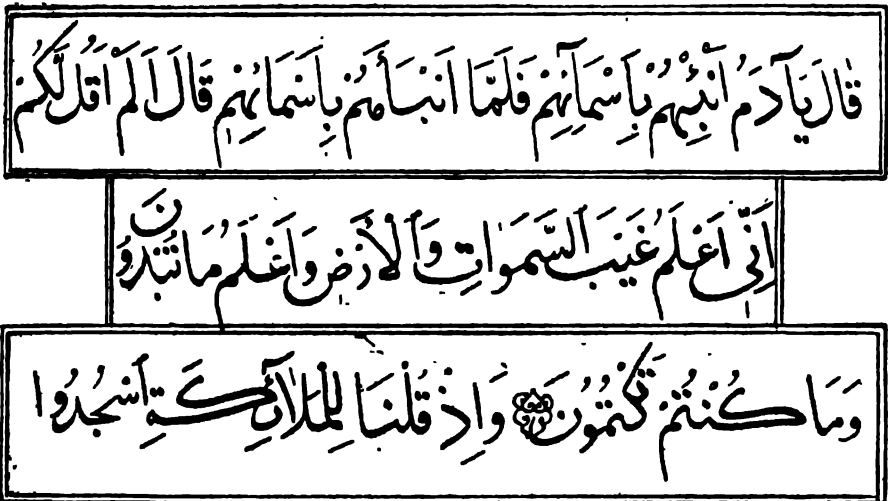 قَالَ يَآ اٰدَمُ اَنْبِئْهُمْ بِاَسْمَآئِهِمْ فَلَمَّا اَنْبَأَهُمْ بِاَسْمَائِهِمْ قَالَ اَلَمْ اَقُلْ لَكُمْ
اِنِّي اَعْلَمُ غَيْبَ السَّمَوَاتِ وَالْأَرْضِ وَاَعْلَمُ مَا تُبْدُونَ
وَمَا كُنْتُمْ تَكْتُمُونَ ۝ وَاِذْ قُلْنَا لِلْمَلَآئِكَةِ اسْجُدُوا